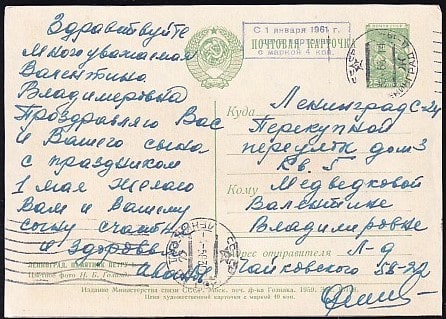 Здравствуйте
многоуважаемая
Валентина
Владимировна
Поздравляю Вас
и Вашего сына
с праздником
1 мая Желаю
Вам и Вашему
сыну счастья
и здоровья
С 1 января 1961 г.
с маркой 4 коп.
ПОЧТОВАЯ КАРТОЧКА
Куда Ленинград С-24
Перекупной
переулок дом 3
кв. 5
Кому Медведковой
Валентине
Владимировне
Адрес отправителя Л-д
Чайковского 58-22
ЛЕНИНГРАД. ПАМЯТНИК ПЕТРУ
Цветное фото Н. Б.
Издание Министерства связи СССР. Моск. печ. ф-ка Гознака. 1959.
Цена художественной карточки с маркой 40 коп.